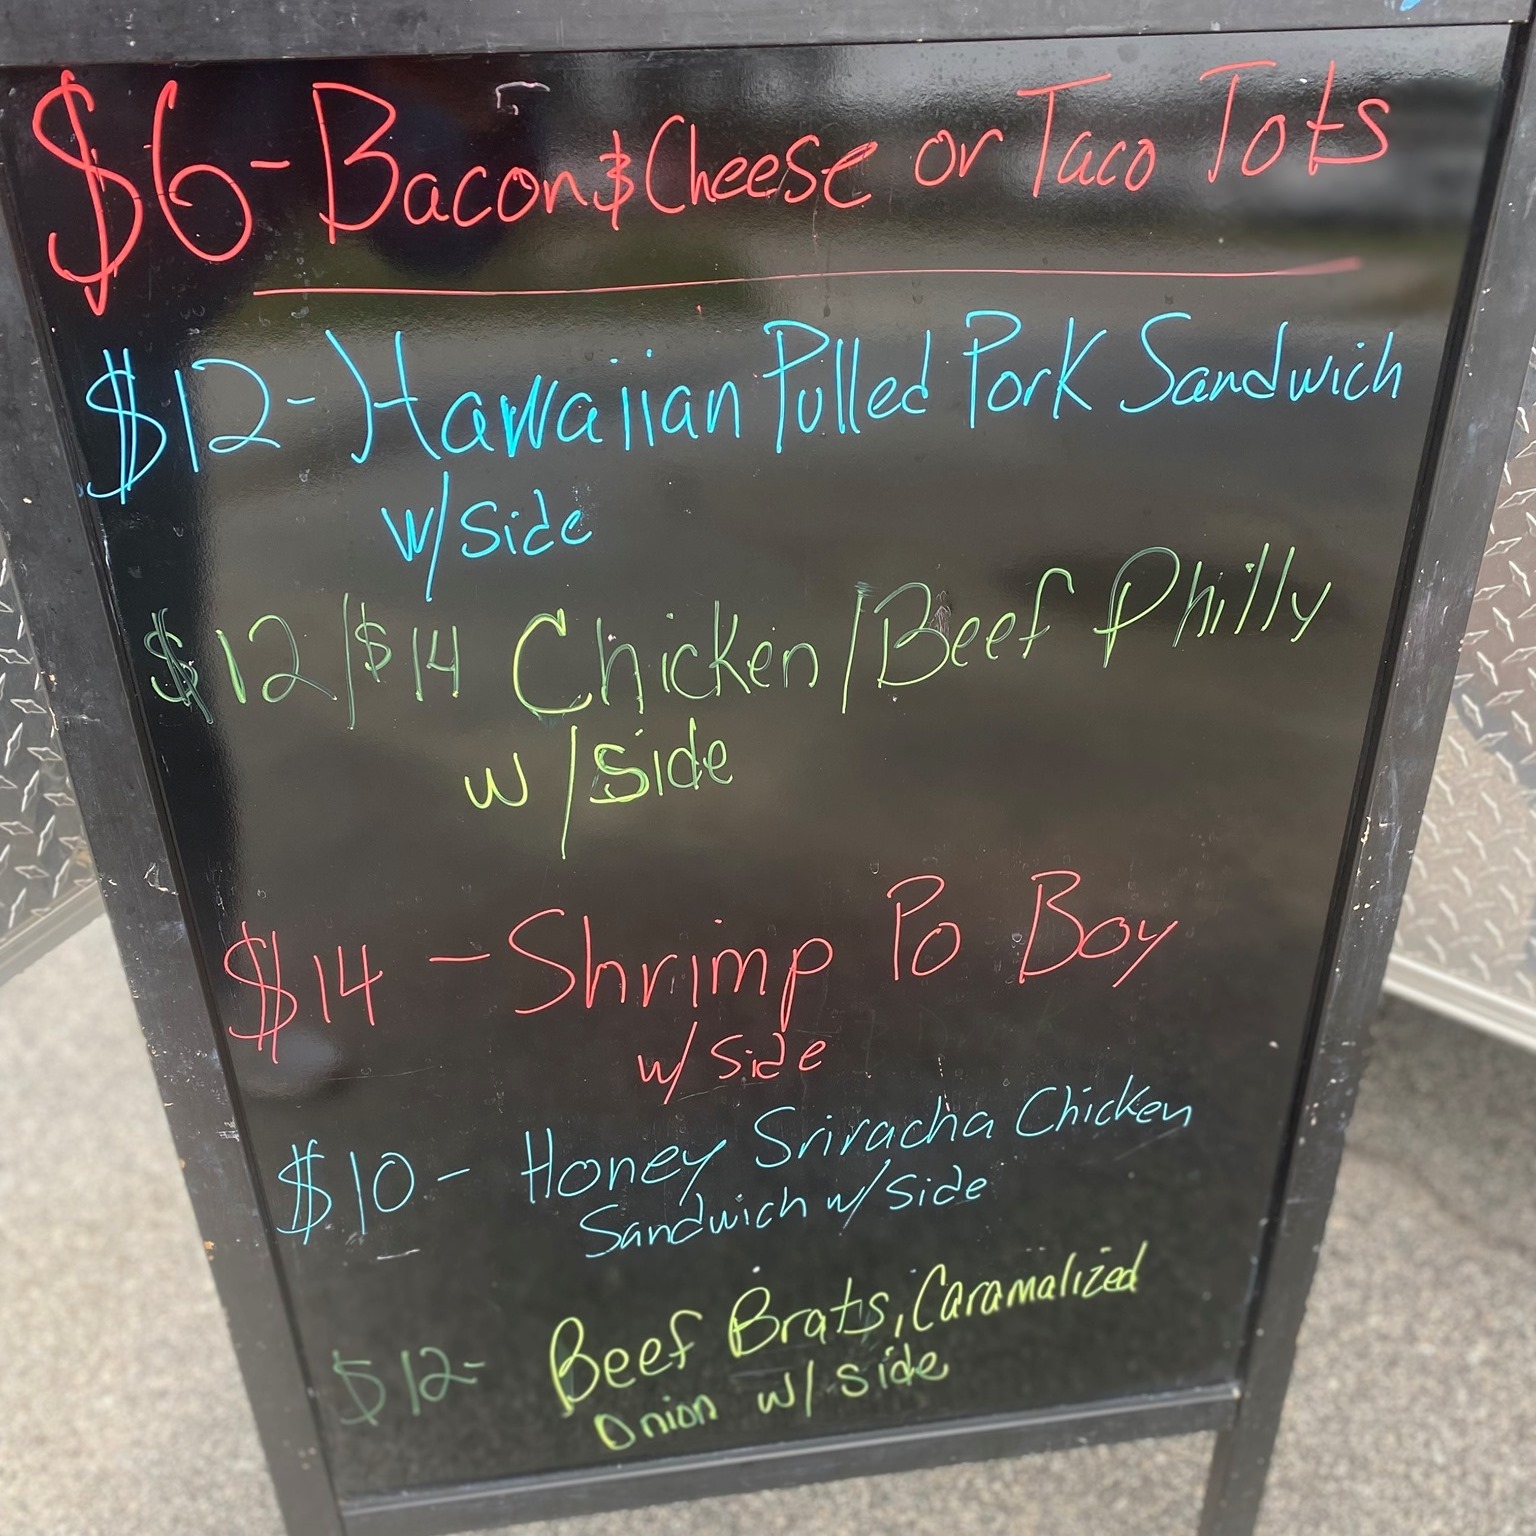 $6- Bacon & Cheese or Taco Tots
$12- Hawaiian Pulled Pork Sandwich
w/ Side
$12/$14 Chicken/Beef Philly
w/Side
$14 - Shrimp Po Boy
w/ Side
$10 - Honey Sriracha Chicken
Sandwich w/ Side
$12- Beef Brats, Caramalized
Onion w/ side